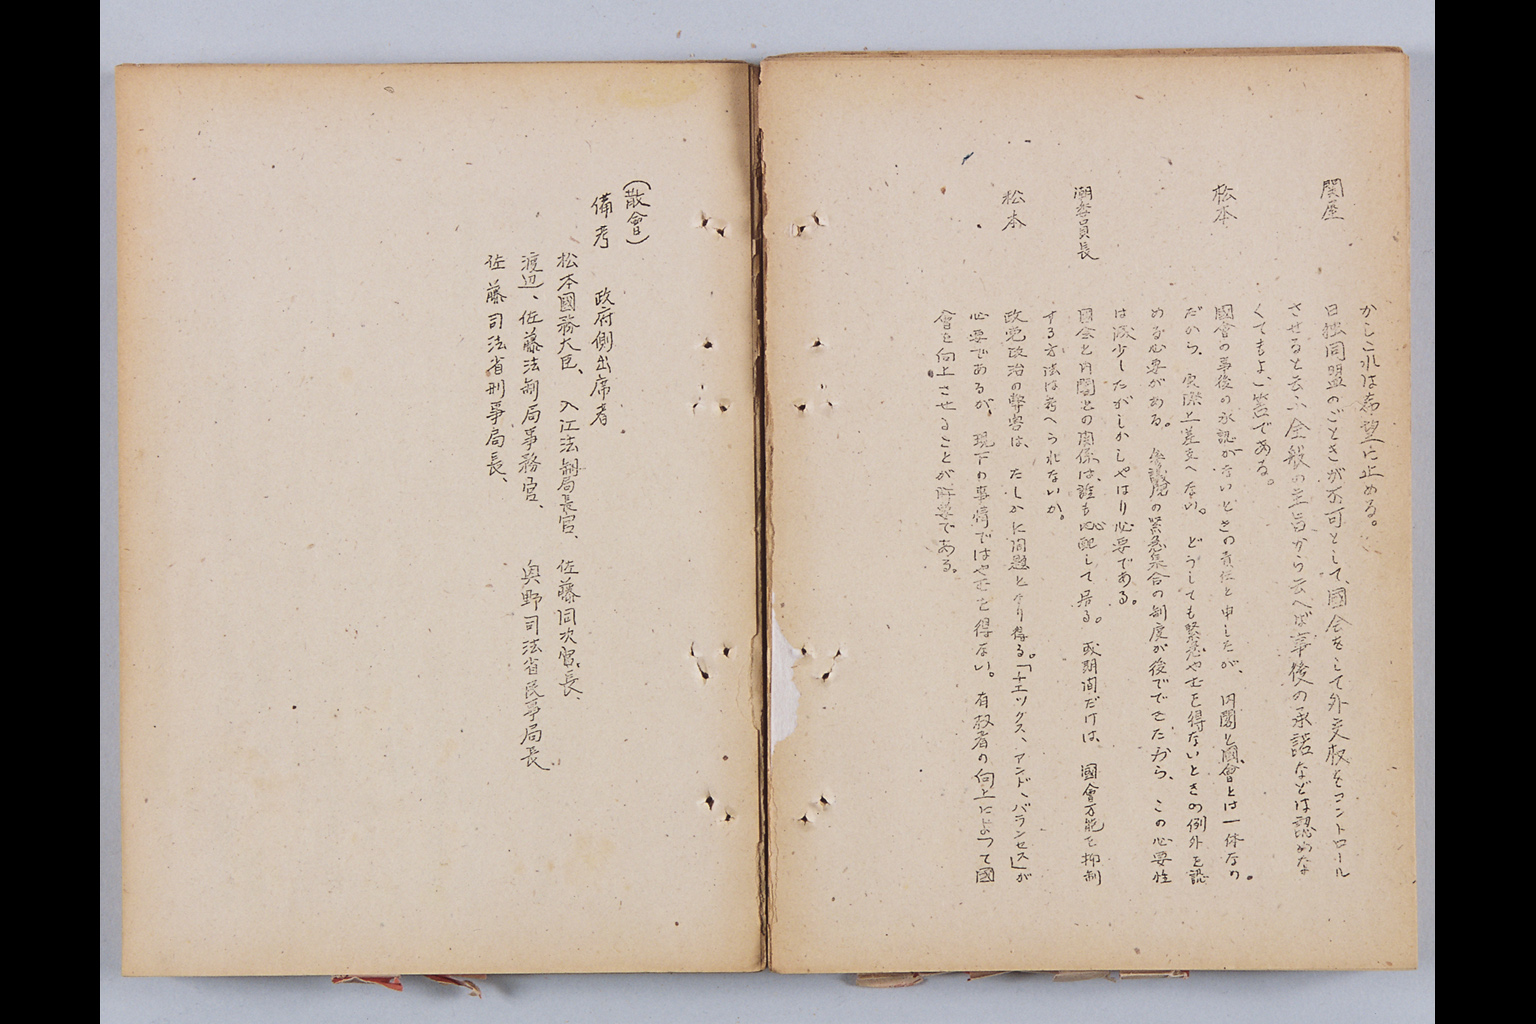 かしこれは希望に止める。
関屋　日独同盟のごときが不可として、國会をして外交权をコントロール
させると云ふ全般の主旨から云へば事後の承諾などは認めな
くてもよい筈である。
松本　國會の事後の承認がないときの責任と申したが、内閣と國會とは一体なの
だから、実際上差支へない。どうしても緊急やむを得ないときの例外を認
める必要がある。参議院の緊急集合の制度が後でできたから、この必要性
は減少したがしかしやはり必要である。
潮委員長　国会と内閣との関係は、誰も心配して居る。或期間だけは、國會万能を抑制
する方法は考へられないか。
松本　政党政治の弊害は、たしかに問題となり得る。「チエツクス、アンド、バランセス」が
必要であるが、現下の事情ではやむを得ない。有权者の向上によつて國
會を向上させることが肝要である。
（散會）
備考　政府側出席者
松本國務大臣、入江法制局長官、佐藤同次長、
渡辺、佐藤法制局事務官、奥野司法省民事局長
佐藤司法省刑事局長、